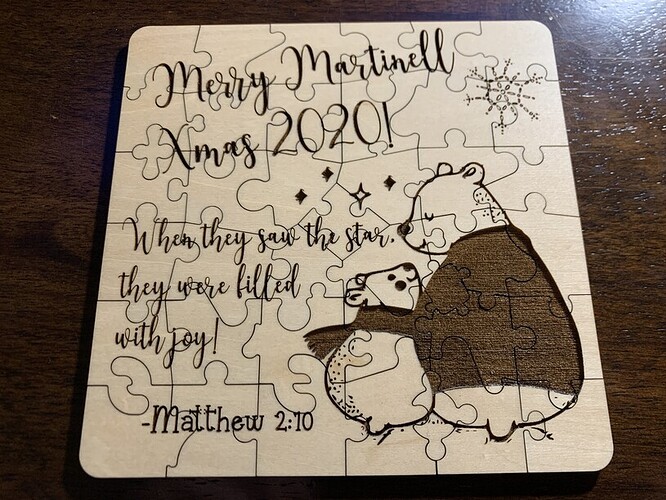 Merry Martinell
Xmas 2020!
When they saw the star,
they were filled
with joy!
-Matthew 2:10